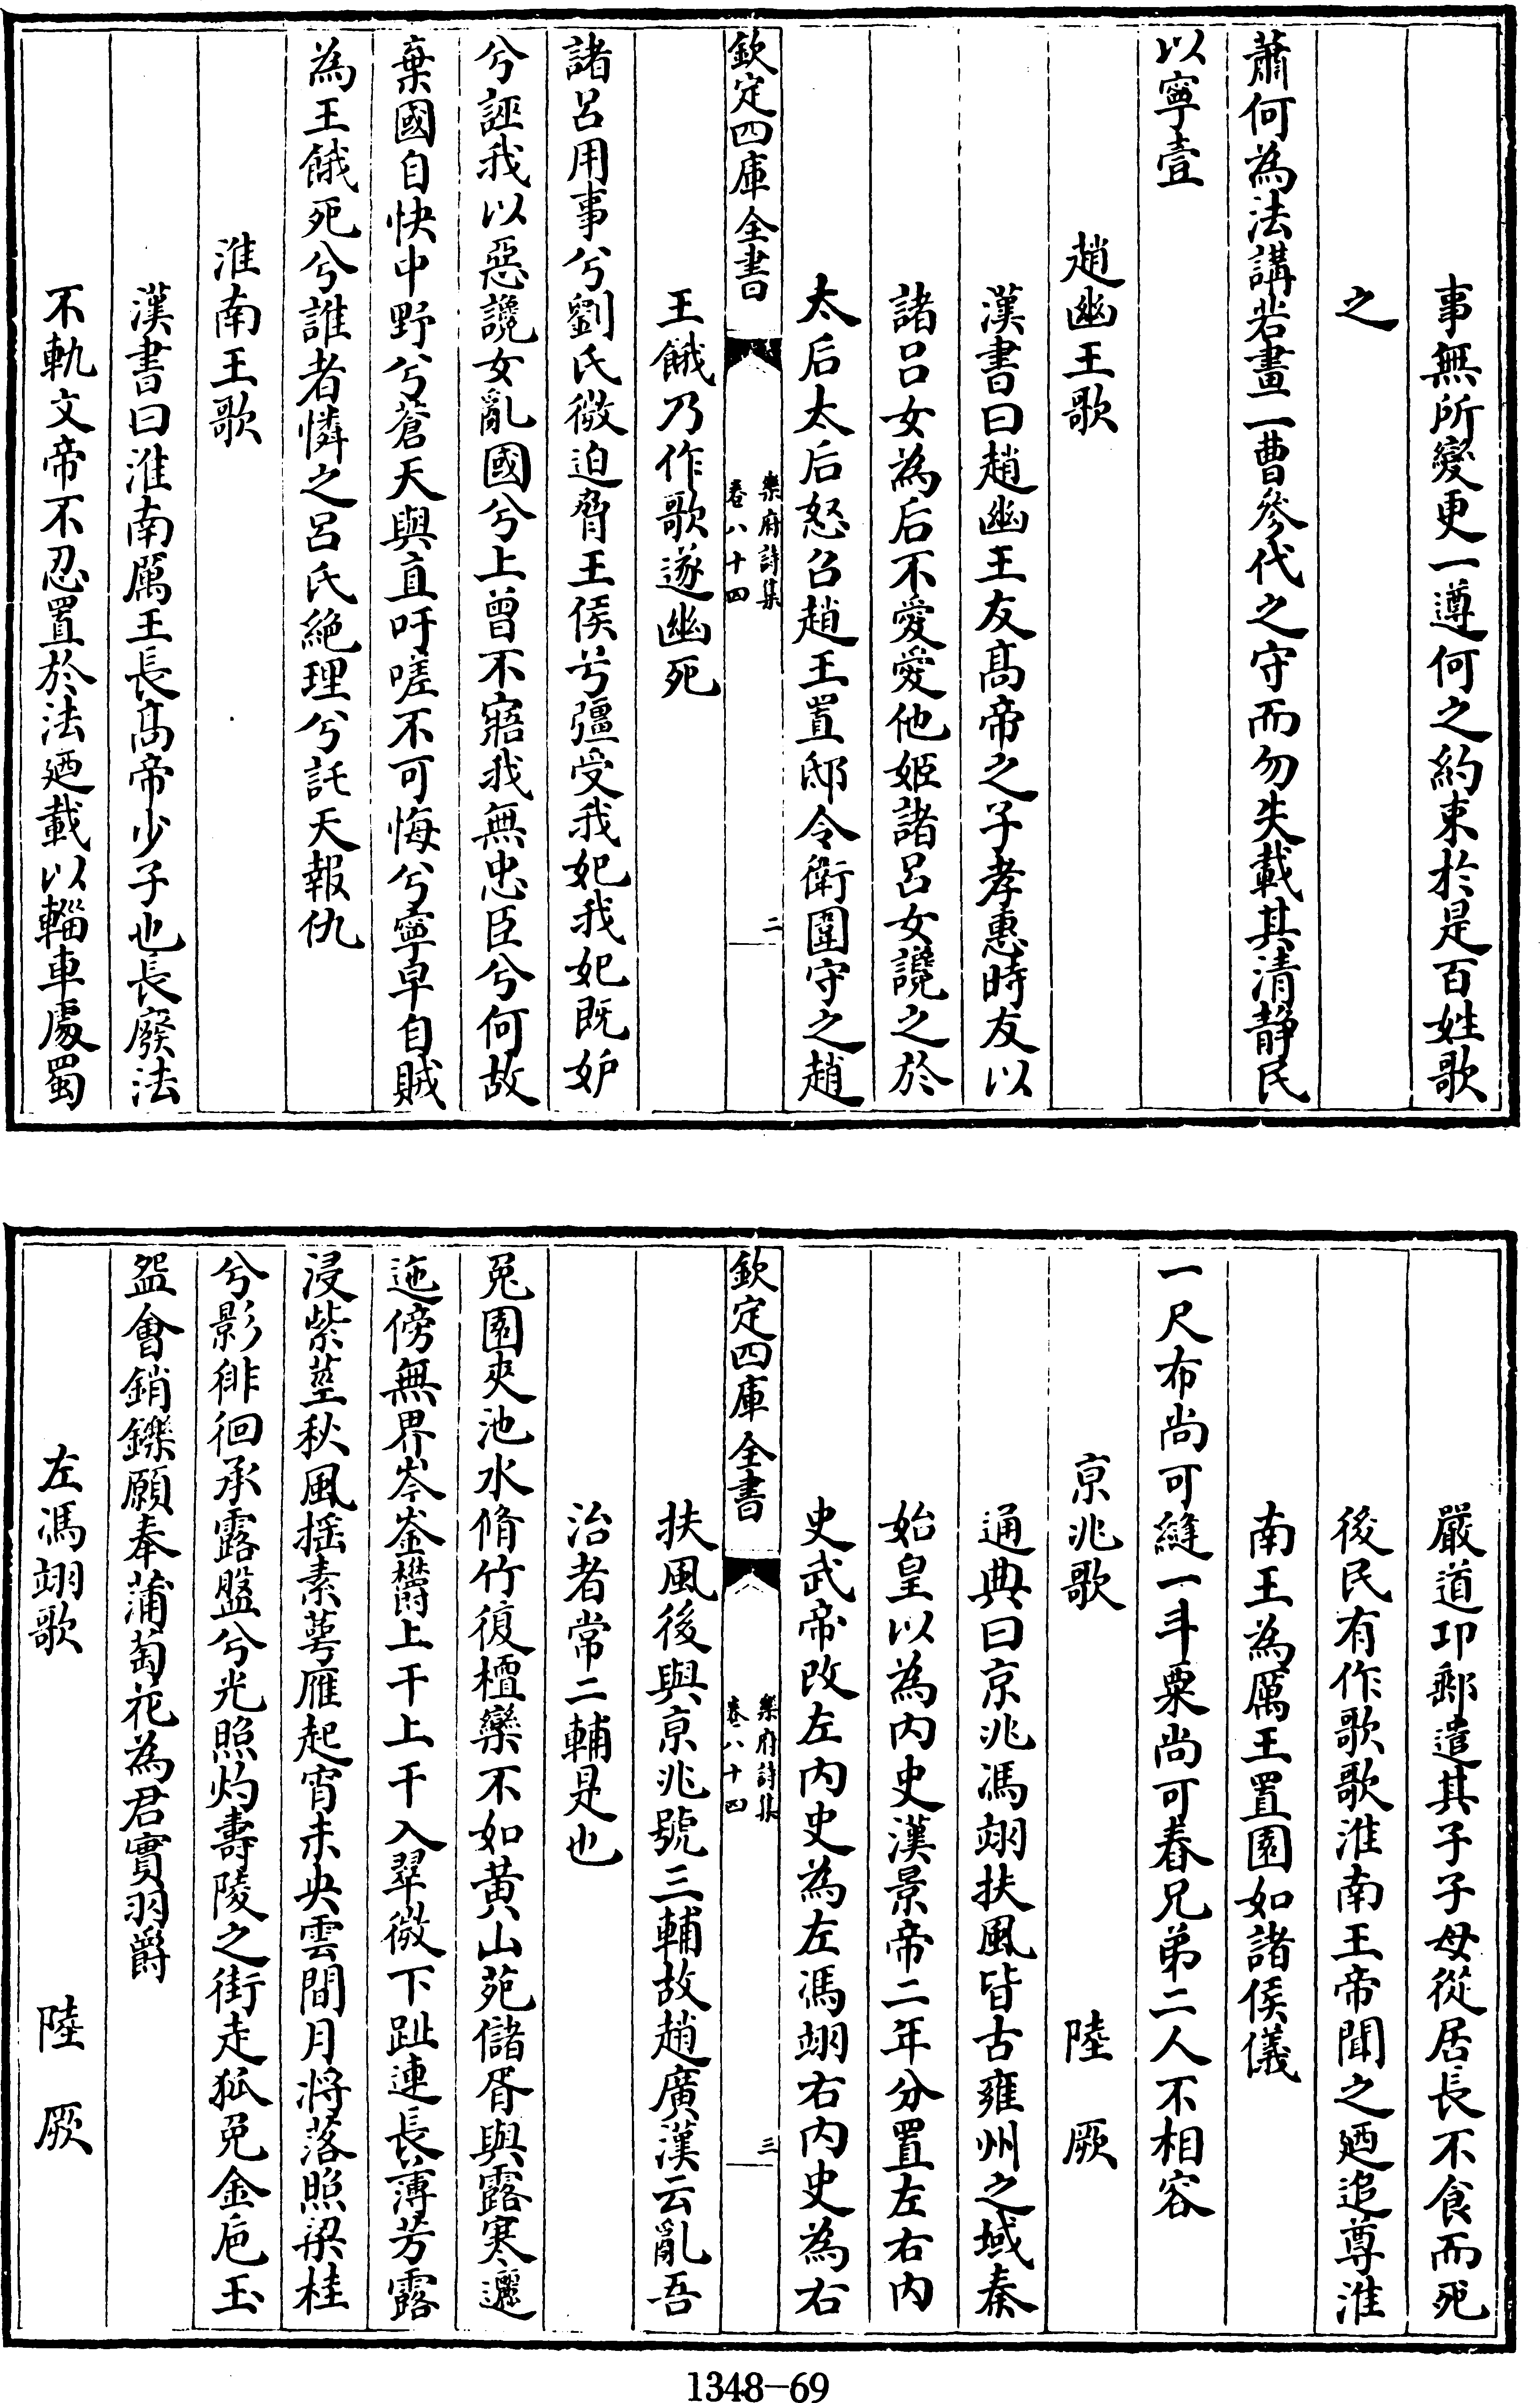 事無所變更一遵何之約束於是百姓歌
之
蕭何為法講若畫一曹參代之守而勿失載其清静民
以寧壹
趙幽王歌
漢書曰趙幽王友髙帝之子孝惠時友以
諸吕女為后不愛愛他姬諸吕女讒之於
太后太后怒召趙王置邸令衛圍守之趙
欽定四庫全書
樂府詩集
卷八十四
二
王餓乃作歌遂幽死
諸吕用事兮劉氏微迫脅王侯兮彊受我妃我妃既妒
兮誣我以惡讒女亂國兮上曾不寤我無忠臣兮何故
棄國自快中野兮蒼天與直吁嗟不可悔兮寧早自賊
為王餓死兮誰者憐之吕氏絶理兮託天報仇
淮南王歌
漢書曰淮南厲王長髙帝少子也長廢法
不軌文帝不忍置於法廼載以輜車處蜀
嚴道卭郵遣其子子母從居長不食而死
後民有作歌歌淮南王帝聞之廼追尊淮
南王為厲王置園如諸侯儀
一尺布尚可縫一斗粟尚可舂兄弟二人不相容
京兆歌
陸厥
通典曰京兆馮翊扶風皆古雍州之域秦
始皇以為内史漢景帝二年分置左右内
史武帝改左内史為左馮翊右内史為右
欽定四庫全書
樂府詩集
卷八十四
三
扶風後與京兆號三輔故趙廣漢云亂吾
治者常二輔是也
兎園夾池水脩竹復檀欒不如黄山苑儲胥與露寒邐
迤傍無界岑崟欝上干上干入翠微下趾連長薄芳露
浸紫莖秋風揺素萼雁起宵未央雲間月将落照梁桂
兮影徘徊承露盤兮光照灼壽陵之街走狐兎金巵玉
盌會銷鑠願奉蒲萄花為君實羽爵
左馮翊歌
陸厥
1348-69